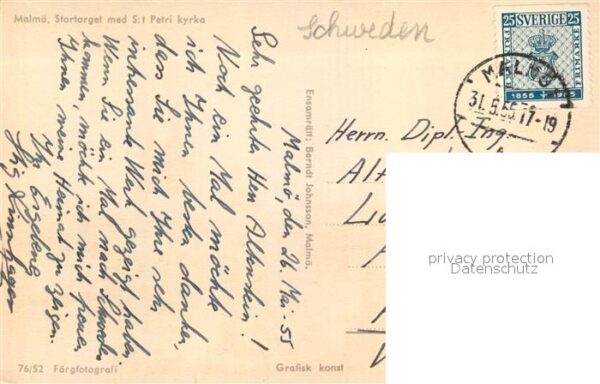 Malmö, Stortorget med S:t Petri kyrka
Schweden
25 SVERIGE 25
FRIMÄRKE
FRIMÄRKE
1855
MALMÖ
31.5.55.17-19
Malmö, den 26. Mai 55
Sehr geehrter Herr Altenstein!
Noch ein Mal möchte
ich Ihnen besten danken,
dass Sie mich Ihre sehr
interessante Werk gezeigt haben.
Wenn Sie ein Mal nach Schweden
kommen, möchte ich mich freuen
Ihnen meine Heimat zu zeigen.
Ihr Ergebene
Stig
Ensamrätt: Berndt Johnsson, Malmö.
Herrn. Dipl. Ing.
Alt
privacy protection
Datenschutz
76/52 Färgfotografi
Grafisk konst